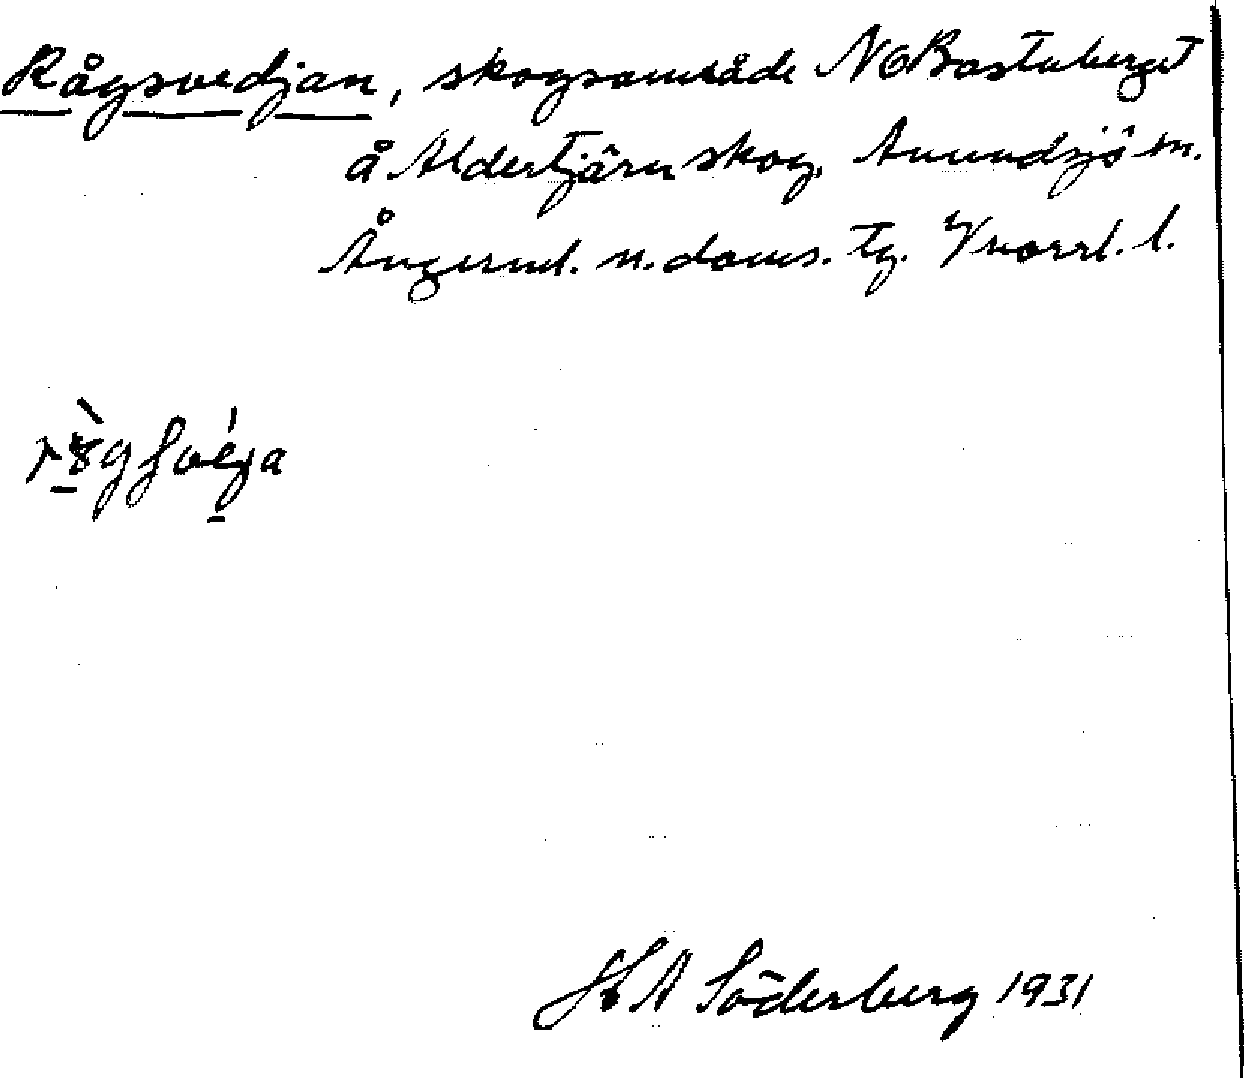 Rågsvedjan, skogsområde NO Bastuberget
å Aldertjärn skog, Anundsjö sn.
Ångerml. n. doms. tg. Vnorrl. l.
H A Söderberg 1931